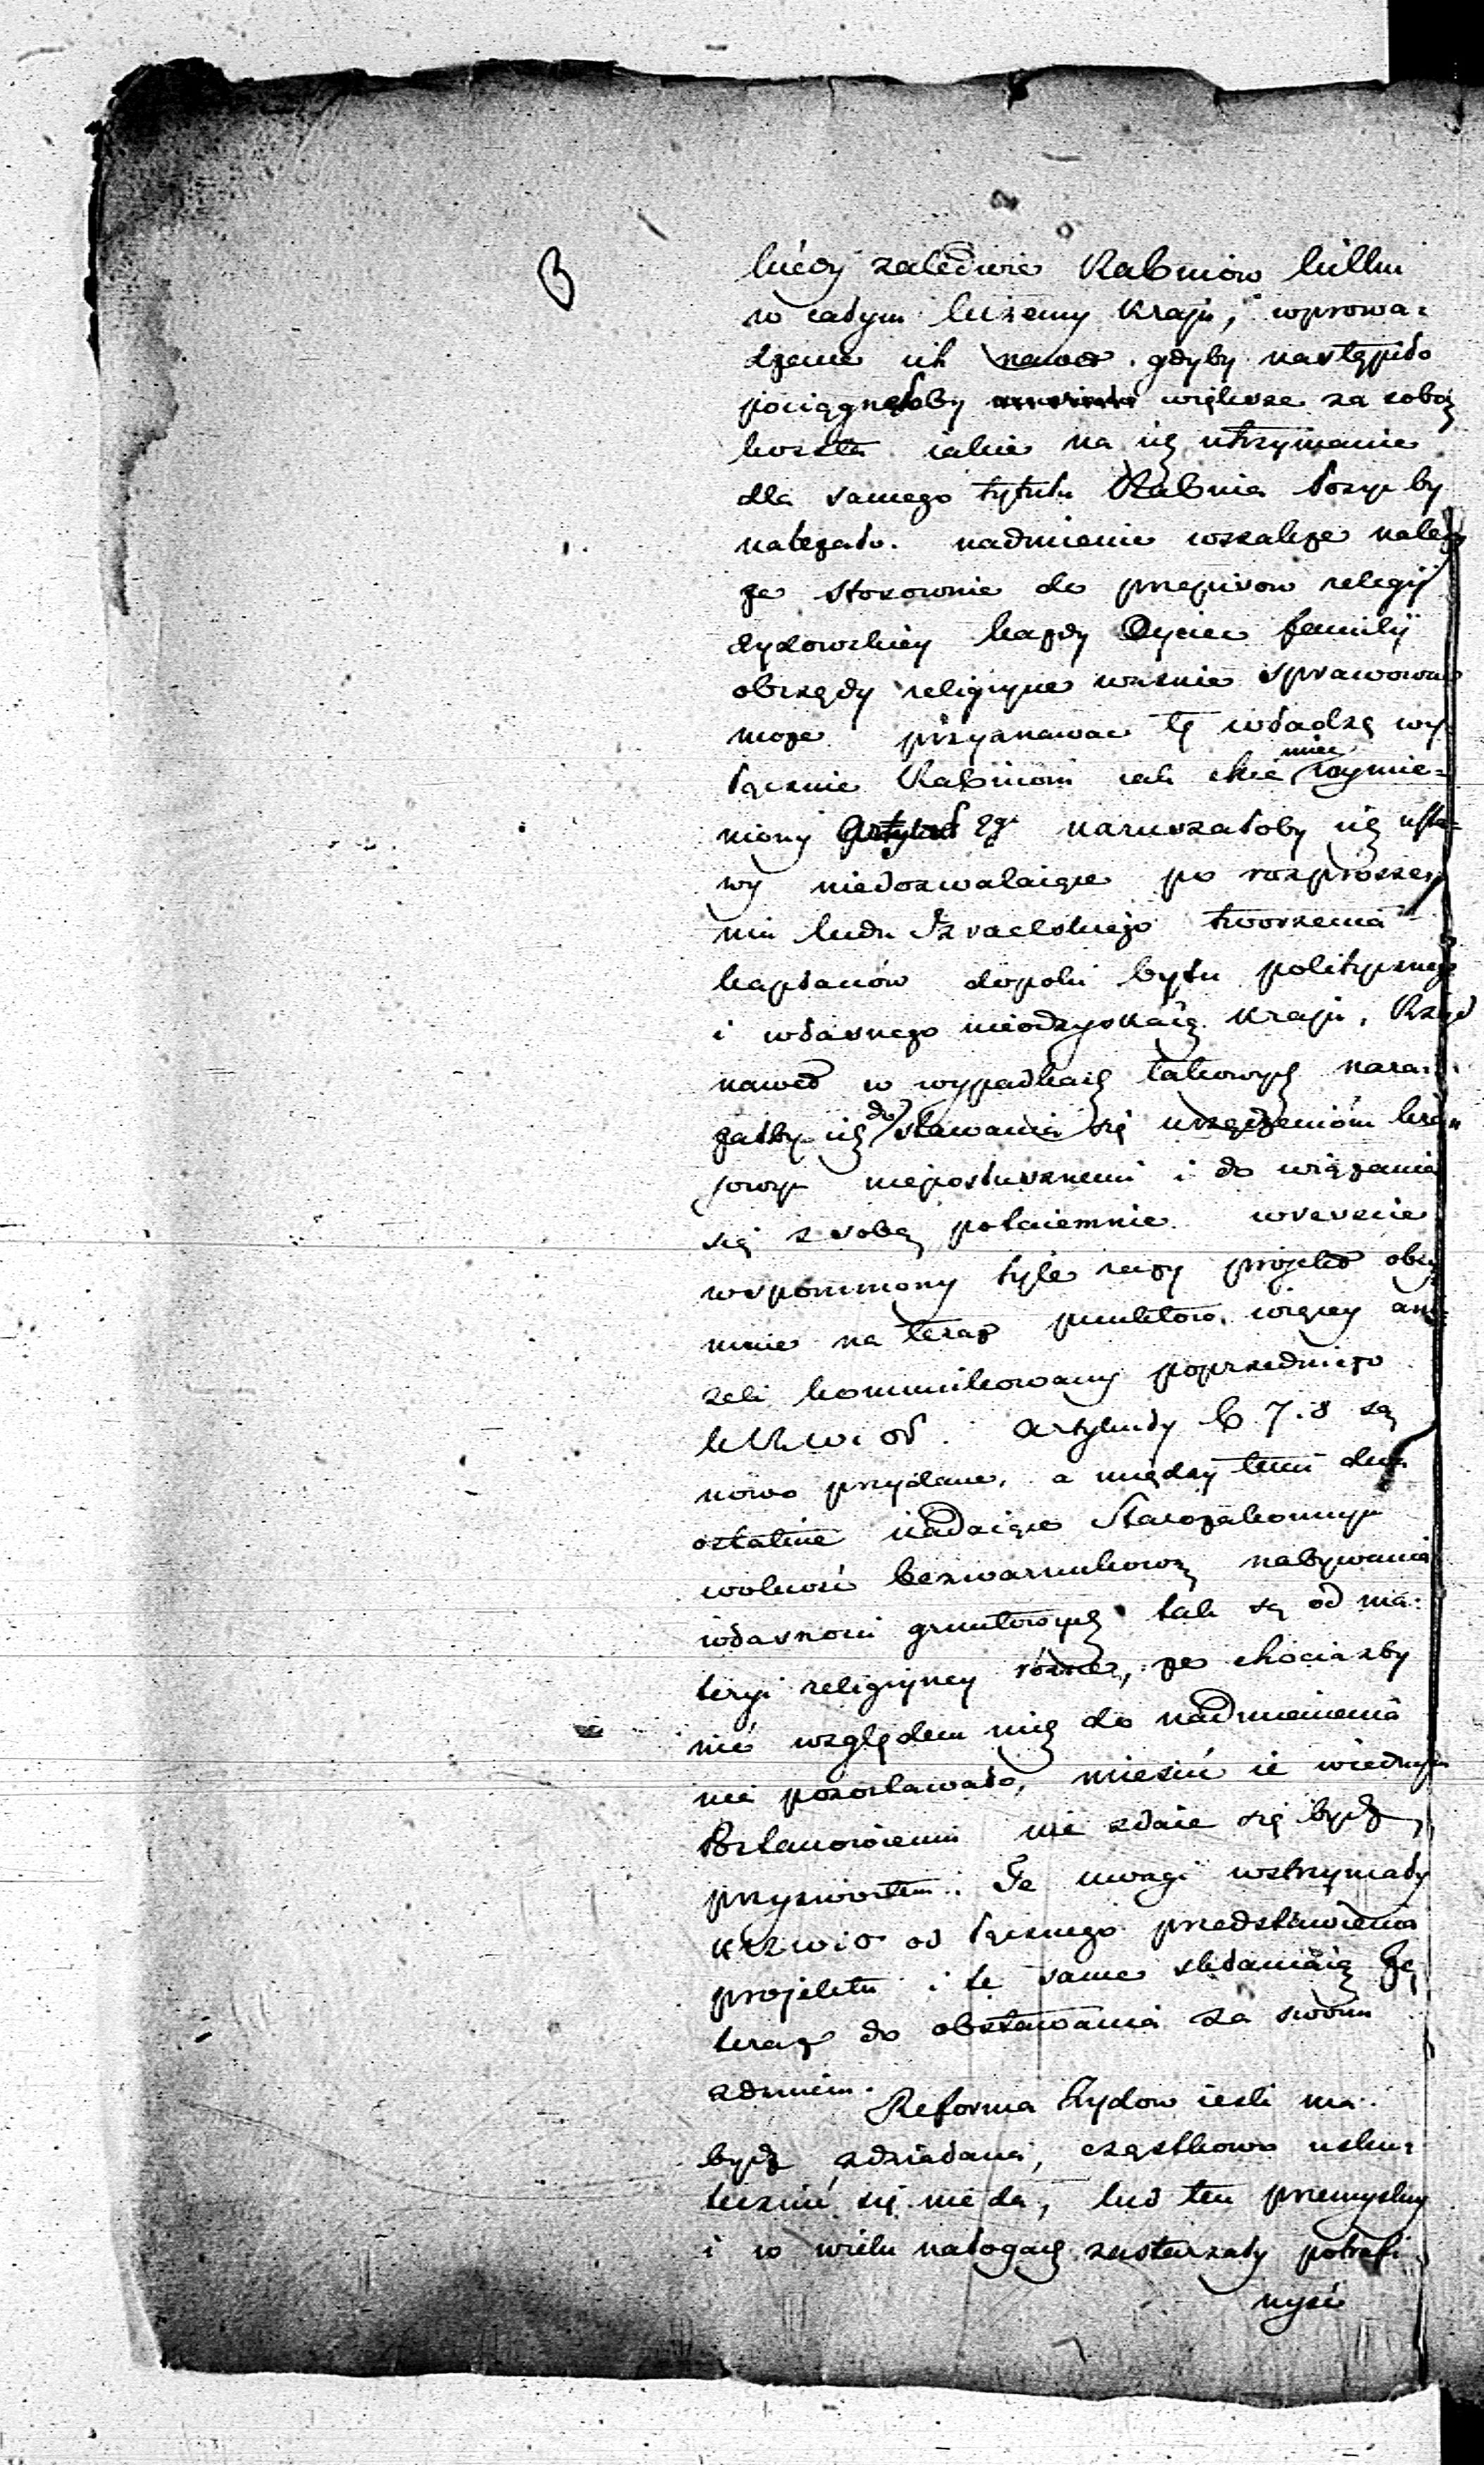 kiedy zaledwie Rabinów kilku
w całym liczemy kraju, wprowa=
dzenie ich nawet gdyby nastąpiło
pociągnęłoby większe za sobą
koszta iakie na ich utrzymanie
dla samego tytułu Rabina łożyć by
należało. nadmienić wszakże należy
że stosownie do przepisow religij
żydowskiey każdy Oyciec familij
obrzędy religiyne ważnie sprawować
może przyznawać tę władzę wy
łącznie Rabinom iak chce mieć wymie=
niony Artykuł 2gi naruszałoby ich usta=
wy niedozwalaiące po rozprosze
niu ludu Izraelskiego tworzenia
kapłanów dopóki bytu politycznego
i własnego nieodzyskaią kraju. Rząd
nawet w wypadkach takowych nara
żałby ich do stawania się urządzeniom kra
jowym nieposłusznemi i do wiązania
się z sobą potaiemnie. wreszcie
wspomniony tyle razy projekt obey
muie na teraz punktow więcey ani=
żeli kommunikowany poprzedniego
Artykuły 6 7. 8 są
nowo przydane, a między temi dwa
ostatnie nadaiące Starozakonnym
wolność bezwarunkową nabywania
własności gruntowych tak są od ma=
teryi religiyney różne, że chociażby
nic względem nich do nadmienienia
nie pozostawało, mieścić ie w iednym
Postanowieniu nie zdaie się bydź
przyzwoitem. Te uwagi wstrzymały
KRZWiO od łącznego przedstawienia
projektu i te same skłaniaią Ją
teraz do obstawania za swoim
zdaniem.
Reforma Żydow ieśli ma
bydź zdziałaną, cząstkowo usku=
tecznić się nie da, lud ten przemyślny
i w wielu nałogach zastarzały potrafi